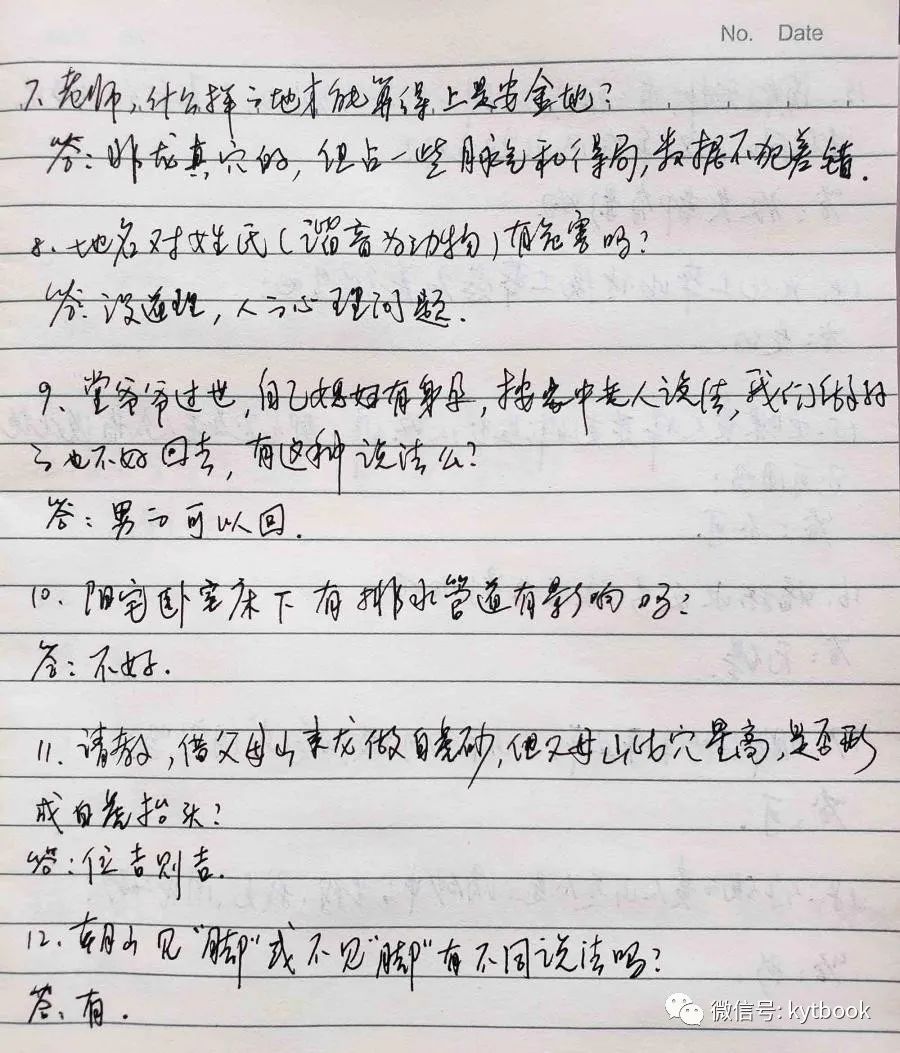 No. Date
7、老师,什么样之地才能算得上是安金地?
答:非龙真穴的,但占一些脉气和得局,数据不犯差错.
8、地名对姓氏(谐音为动物)有危害吗?
答:没道理,人之心理问题.
9、堂爷爷过世,自己媳妇有身孕,按家中老人说法,我们做孙
子也不好回去,有这种说法么?
答:男方可以回.
10、阳宅卧室床下有排水管道有影响吗?
答:不好.
11、请教,借父母山来龙做白虎砂,但父母山比穴星高,是否形
成白虎抬头?
答:位吉则吉.
12、朝山见"脚"或不见"脚"有不同说法吗?
答:有.
微信号: kytbook